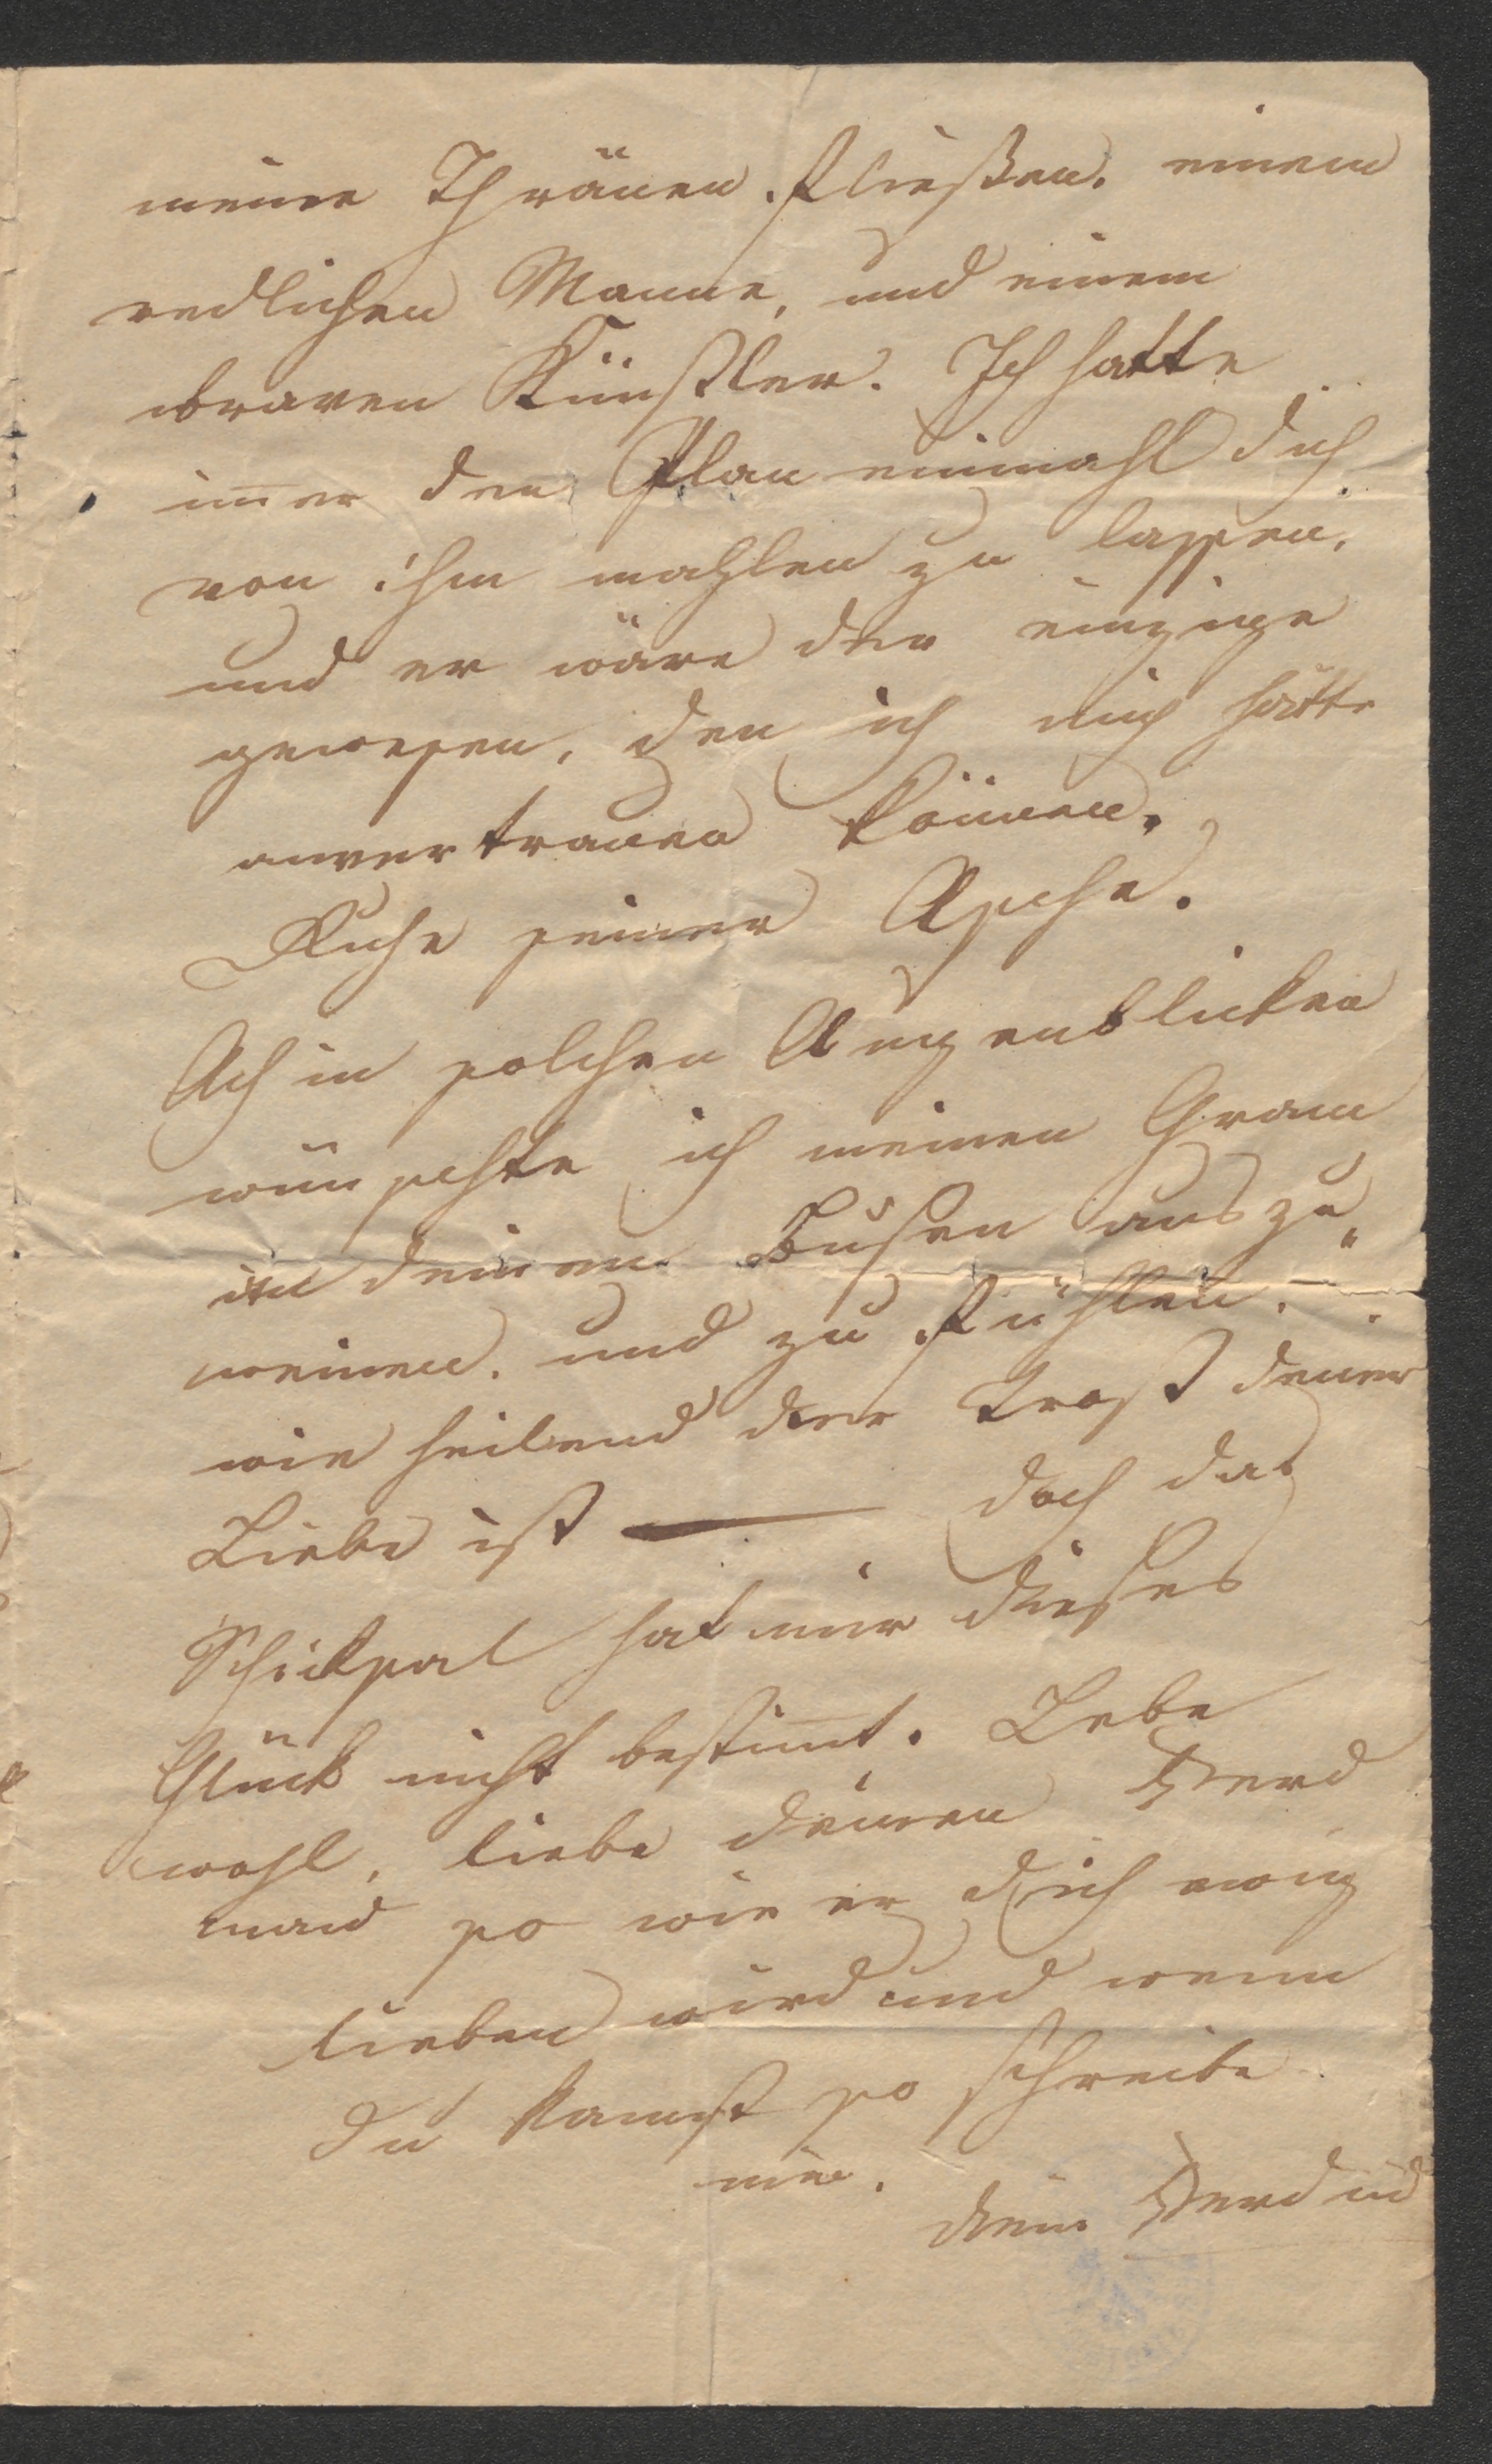 meine Thränen fließen. einem
redlichen Manne, und einem
braven Künstler. Ich hatte
im̄er den Plan einmahl dich
von ihm mahlen zu lassen,
und er wäre der einzige
gewesen, den ich mich hätte
anvertrauen können.
Ruhe seiner Asche.
Ach in solchen Augenblicken
wünschte ich meinen Gram
in deinen Busen auszu„
weinen. und zu fühlen.
wie heilend der Trost deiner
Liebe ist — doch das
Schicksal hat mir dieses
Glück nicht bestim̄t. Lebe
wohl, liebe deinen Ferd
nand so wie er dich ewig
lieben wird und wenn
du kannst so schreibe
mir.
dein Ferdnd